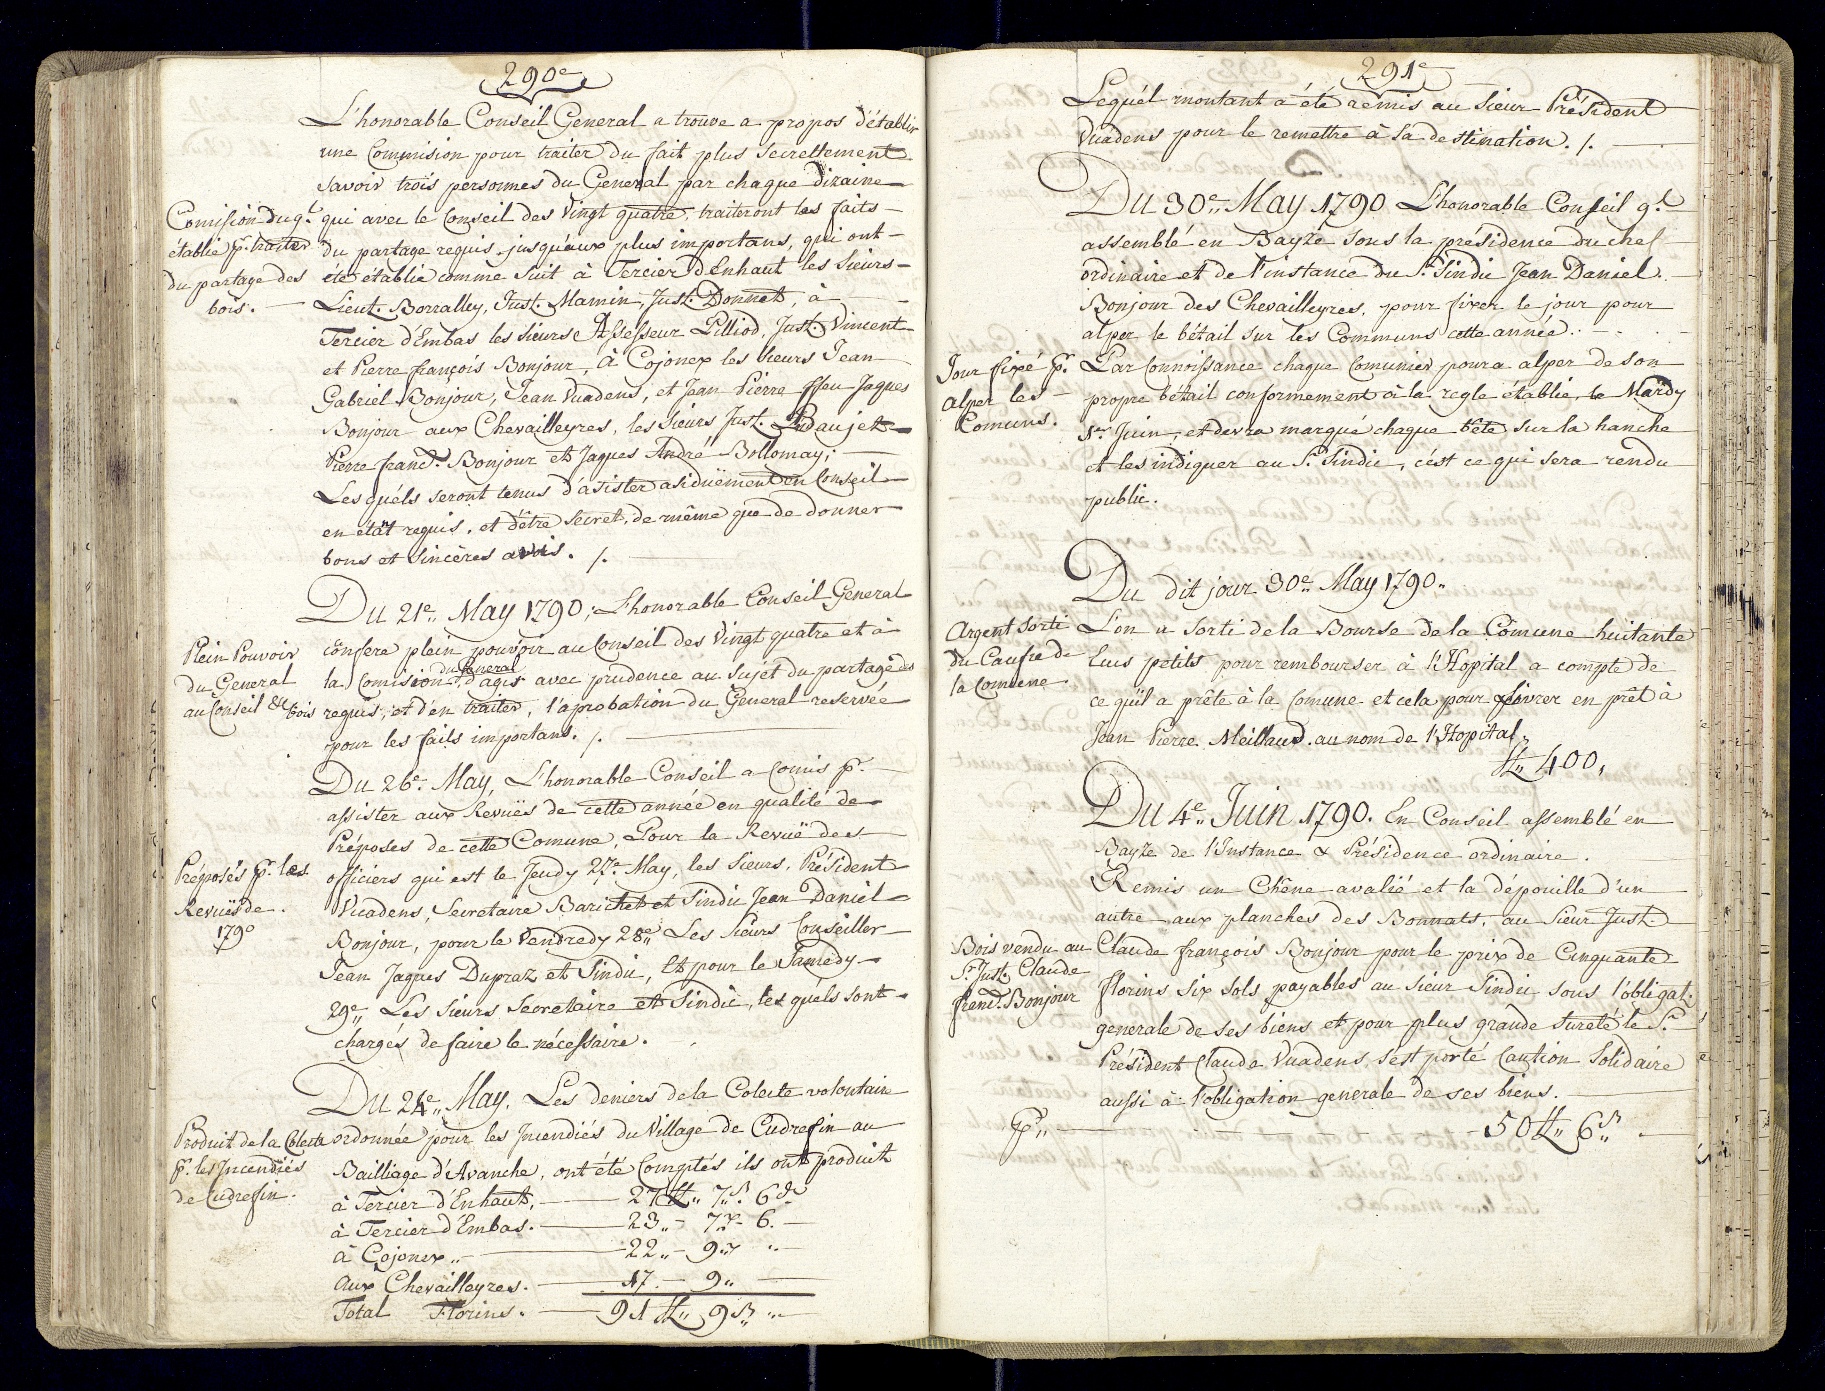 290e
L'honorable Conseil General a trouve a propos d'établir
une Commision pour traiter du fait plus secrettement
savoir trois personnes du General par chaque dizaine
Comision du gl.
établie pr. traiter
du partage des
bois.
qui avec le Conseil des Vingt quatre, traiteront les faits
du partage requis jusqu'aux plus importans, qui ont
été établie comme suit à Tercier d'Enhaut les Sieurs
Lieut. Borralley, Just. Mamin, Just. Donnet, à
Tercier d'Embas les Sieurs Assesseur Pilliod, Just. Vincent
et Pierre françois Bonjour, à Cojonex les Sieurs Jean
Gabriel Bonjour, Jean Vuadens, et Jean Pierre ffeu Jaques
Bonjour aux Chevailleyres, les Sieurs Just. Ridaujet
Pierre franc. Bonjour et Jaques André Bollomay;
Les quéls seront tenus d'asister asiduëment en Conseil
en état requis, et d'être secret, de même que de donner
bons et Sincères avis. /.
Du 21e,, May 1790; L'honorable Conseil General
Plein Pouvoir
du General
au Conseil &c bois
cönfere plein pouvoir au Conseil des Vingt quatre et à
la Comision du General d'agir avec prudence au sujét du partage des
requis, et d'en traiter, l'aprobation du General reservée
pour les faits importans. /.
Du 26e. May, L'honorable Conseil a Comis pr.
assister aux Revuës de cette année en qualité de
Préposes de cette Comune, Pour la Revuë des
Préposés pr. les
Revuës de
1790
officiers qui est le Jeudy 27e. May, les Sieurs, Président
Vuadens, Secretaire Barichet et Sindic Jean Daniel
Bonjour, pour le Vendredy 28e,, Les Sieurs Conseiller
Jean Jaques Dupraz et Sindic, Et pour le Samedy
29e,, Les Sieurs Secretaire et Sindic, les quéls sont
chargés de faire le nécessaire.
Du 24e,, May. Les deniers de la Colecte volontair
Produit de la Colecte
pr. les Incendiés
de Cudrefin.
ordonnée pour les Incendiés du Village de Cudrefin au
Bailliage d'Avanche, ont été Comptés ils ont produit
à Tercier d'Enhaut, 27 ff,, 7 ß 6 d
à Tercier d'Embas. 23,, 7,, 6.
à Cojonex,, 22,, 9,, ,,
aux Chevailleyres. 17. 9,,
Total Florins. 91 ff,, 9 ß ,,
291e
Lequél montant a été remis au Sieur Président
Vuadens pour le remettre à Sa destination. /.
Du 30e,, May 1790 L'honorable Conseil gl.
assemblé en Bayze sous la présidence du chef
ordinaire et de l'instance du Sr. Sindic Jean Daniel
Bonjour des Chevailleyres, pour fixer le jour pour
alper le bétail sur les Communs cette année.
Jour fixé pr.
alper les
Comuns.
Par Connoissance chaque Comunier poura alper de son
propre bétail conformement à la regle établie, le Mardy
1er Juin, et devra marqué chaque bête sur la hanche
et les indiquer au Sr. Sindic, c'ést ce qui sera rendu
public.
Du dit jour 30e,, May 1790,,
Argent sorti
du Caufre de
la Comune
L'on a Sorti de la Bourse de la Comune huitante
Ecus petits pour rembourser à l'Hopital a compte de
ce quil a prête à la Comune et cela pour livrer en prêt à
Jean Pierre Meillaud au nom de l'Hopital,
ff,, 400,
Du 4e,, Juin 1790. En Conseil assemblé en
Bayze de l'Instance & Présidence ordinaire.
Remis un Chêne avalié et la dépouille d'un
autre aux planches des Bonnats, au Sieur Just.
Bois vendu au
Sr. Just. Claude
franc. Bonjour
Claude françois Bonjour pour le prix de Cinquante
florins Six sols payables au Sieur Sindic sous l'obligat.
generale de ses biens et pour plus grande Sureté le Sr.
Président Claude Vuadens, s'est porté Caution Solidaire
aussi à l'obligation generale de ses biens.
Pr,, 50 ff,, 6 ß,,